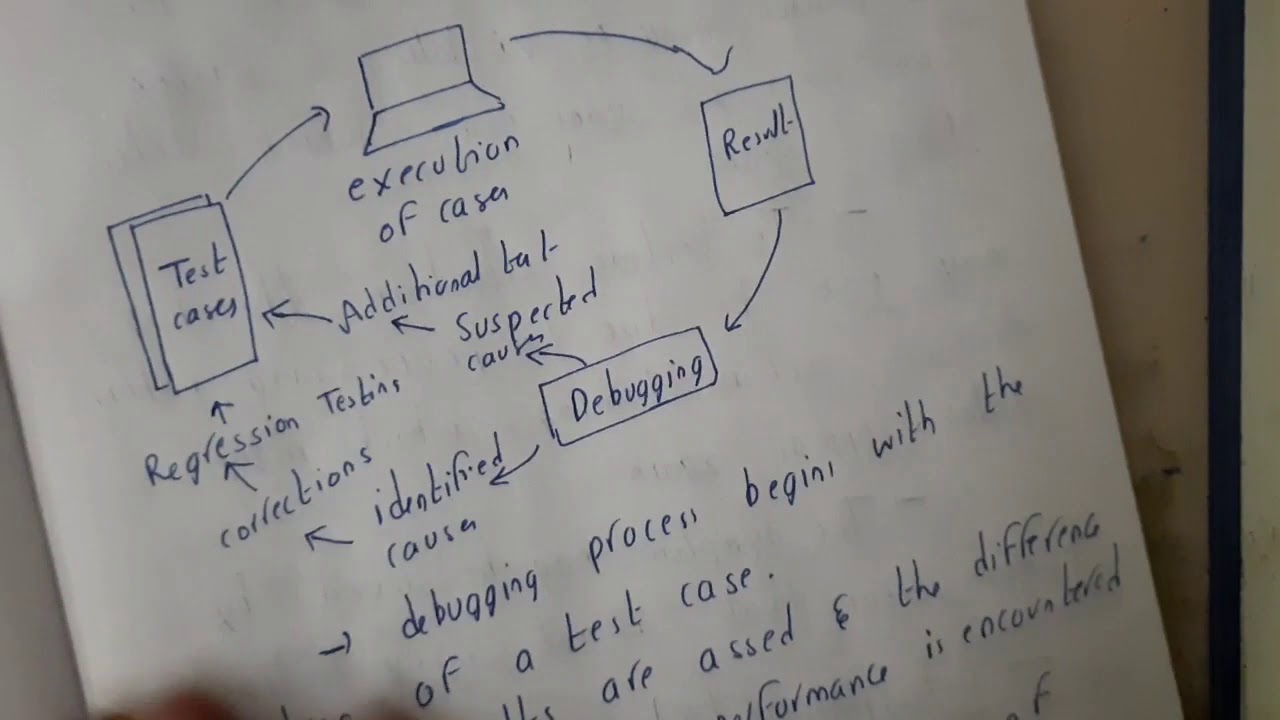 execution
of cases
Result
Test
cases
Additional test
Suspected
causes
Debugging
Regression Testing
corrections
identified
causes
→ debugging process begins with the
of a test case.
are assed & the difference
is encountered
of